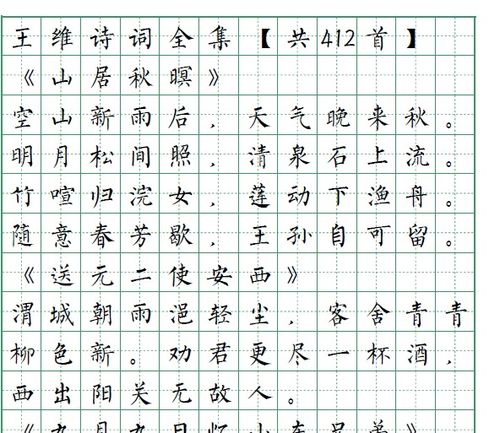 王维诗词全集【共412首】
《山居秋暝》
空山新雨后，天气晚来秋。
明月松间照，清泉石上流。
竹喧归浣女，莲动下渔舟。
随意春芳歇，王孙自可留。
《送元二使安西》
渭城朝雨浥轻尘，客舍青青
柳色新。劝君更尽一杯酒，
西出阳关无故人。
《九月九日忆山东兄弟》